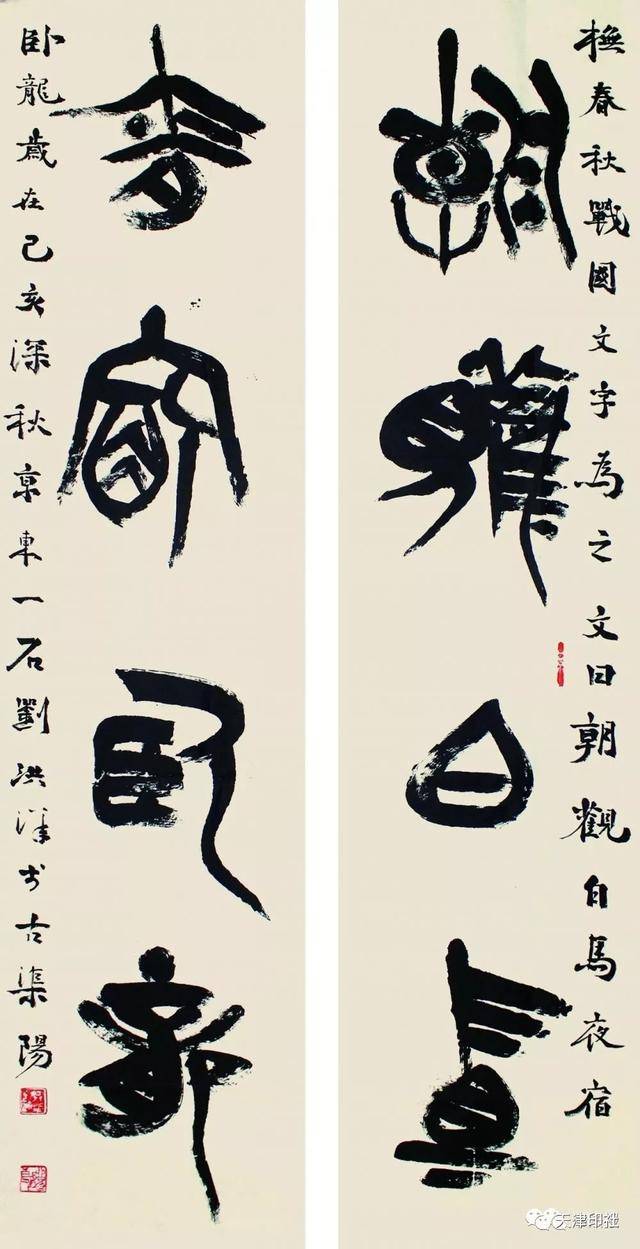 橅春秋戰國文字為之文曰朝觀白馬夜宿
朝觀白馬
夜宿臥龍
卧龍歲在己亥深秋京東一石劉洪洋於古渠陽
天津印社